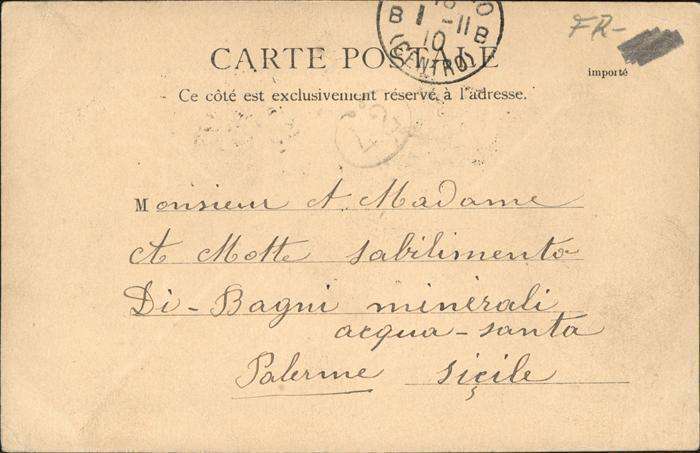 B 1 -11 B
10
(CENTRO)
FR-
CARTE POSTALE
importé
Ce côté est exclusivement réservé à l'adresse.
Monsieur et Madame
A Motte sabilimento
Di-Bagni minérali
acqua-santa
Palerme siçile